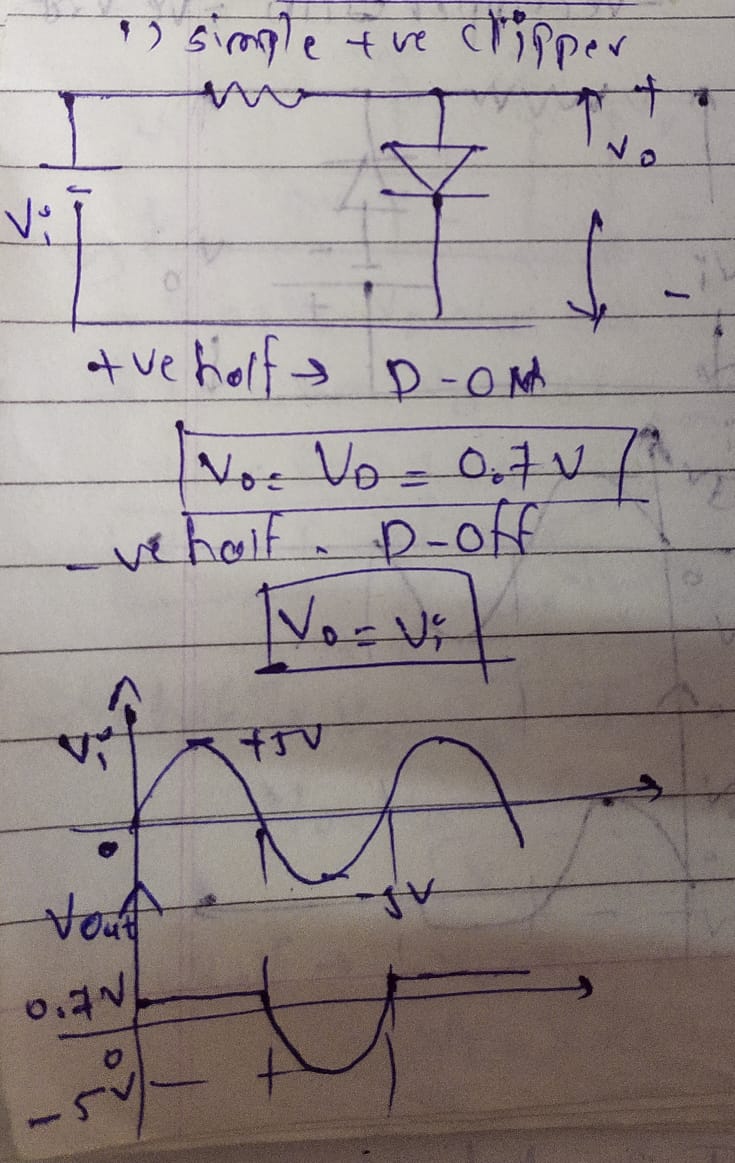 1) simple +ve clipper
+
Vo
Vi
-
+ve half → D-ON
Vo = VD = 0.7 V
-ve half . D-off
Vo = Vi
Vi +5V
0
-5V
Vout
0.7V
0
-5V